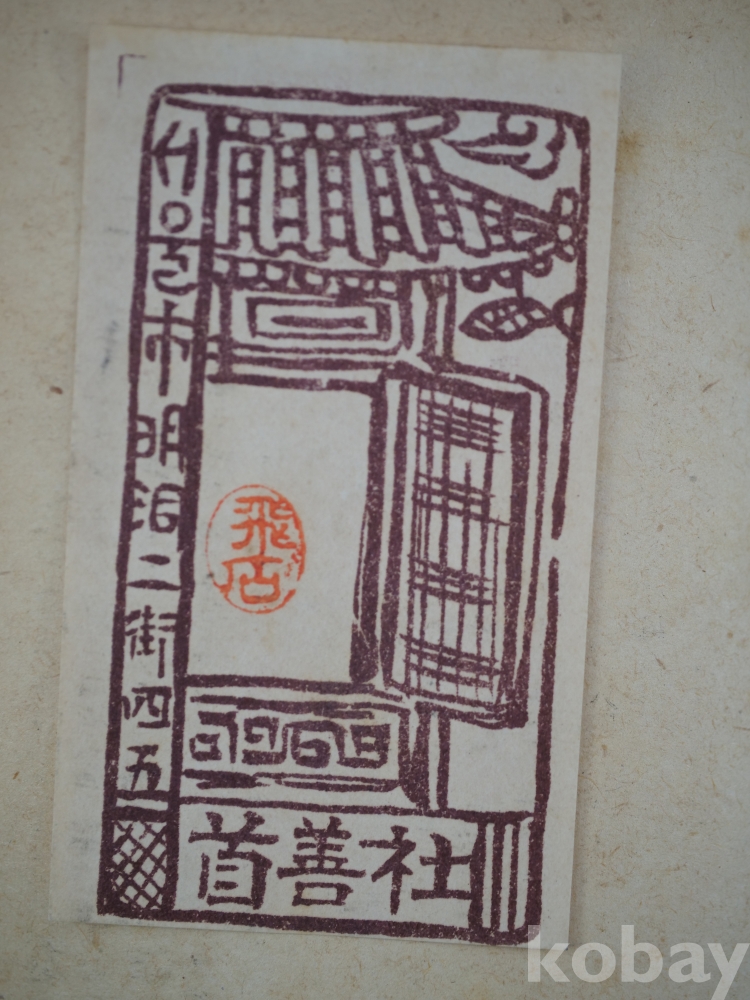 서울市明洞二街四五
飛石
首善社
kobay